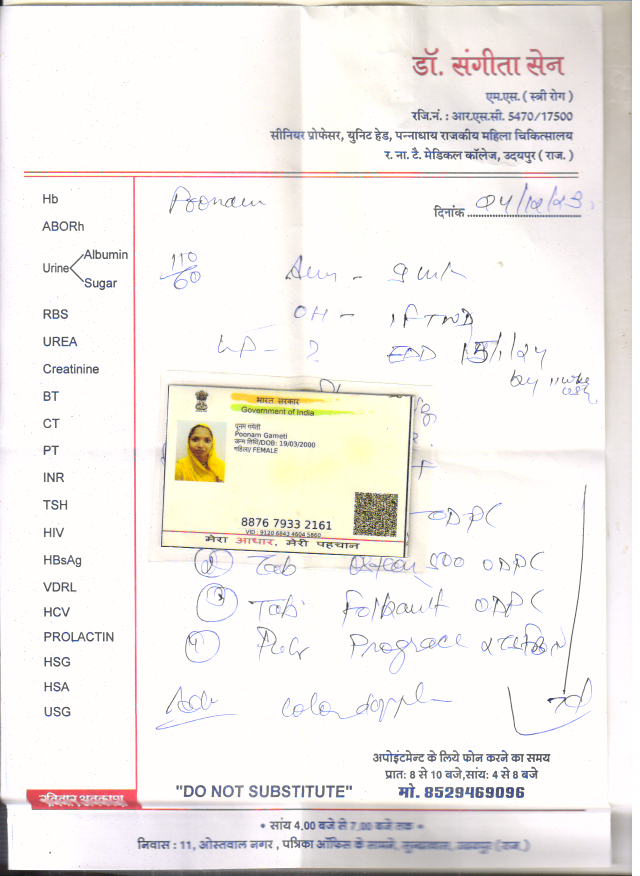 डॉ. संगीता सेन
एम.एस. ( स्त्री रोग )
रजि.नं. : आर.एस.सी. 5470/17500
सीनियर प्रोफेसर, युनिट हेड, पन्नाधाय राजकीय महिला चिकित्सालय
र. ना. टै. मेडिकल कॉलेज, उदयपुर ( राज. )
Hb
Poonam
दिनांक
04/12/23
ABORh
Urine
Albumin
Sugar
110
60
RBS
OH -
UREA
LP - ?
EDD 15/1/24
by 11 wks
Creatinine
BT
CT
PT
INR
TSH
HIV
HBsAg
VDRL
HCV
PROLACTIN
HSG
HSA
USG
भारत सरकार
Government of India
पूनम गमेती
Poonam Gameti
जन्म तिथि/DOB: 19/03/2000
महिला/ FEMALE
8876 7933 2161
VID : 9120 6843 4604 5860
मेरा आधार, मेरी पहचान
ODPC
Tab 500 ODPC
3 Tab. ODPC
4
Adv color doppl
अपोइंटमेन्ट के लिये फोन करने का समय
प्रात: 8 से 10 बजे, सांय: 4 से 8 बजे
मो. 8529469096
रविवार अवकाश
"DO NOT SUBSTITUTE"
• सांय 4.00 बजे से 7.00 बजे तक •
निवास : 11, ओस्तवाल नगर , पत्रिका ऑफिस के सामने, उदयपुर (राज.)